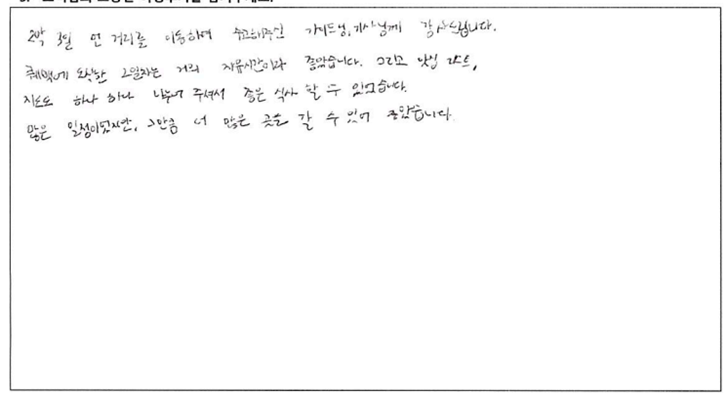 2박 3일 먼 거리를 이동하며 수고해주신 가이드님, 기사님께 감사드립니다.
퀘백에 도착한 2일차는 거의 자유시간이라 좋았습니다. 그리고 맛집 리스트,
지도도 하나 하나 나눠 주셔서 좋은 식사 할 수 있었습니다.
많은 일정이었지만, 그만큼 더 많은 곳을 갈 수 있어 좋았습니다.